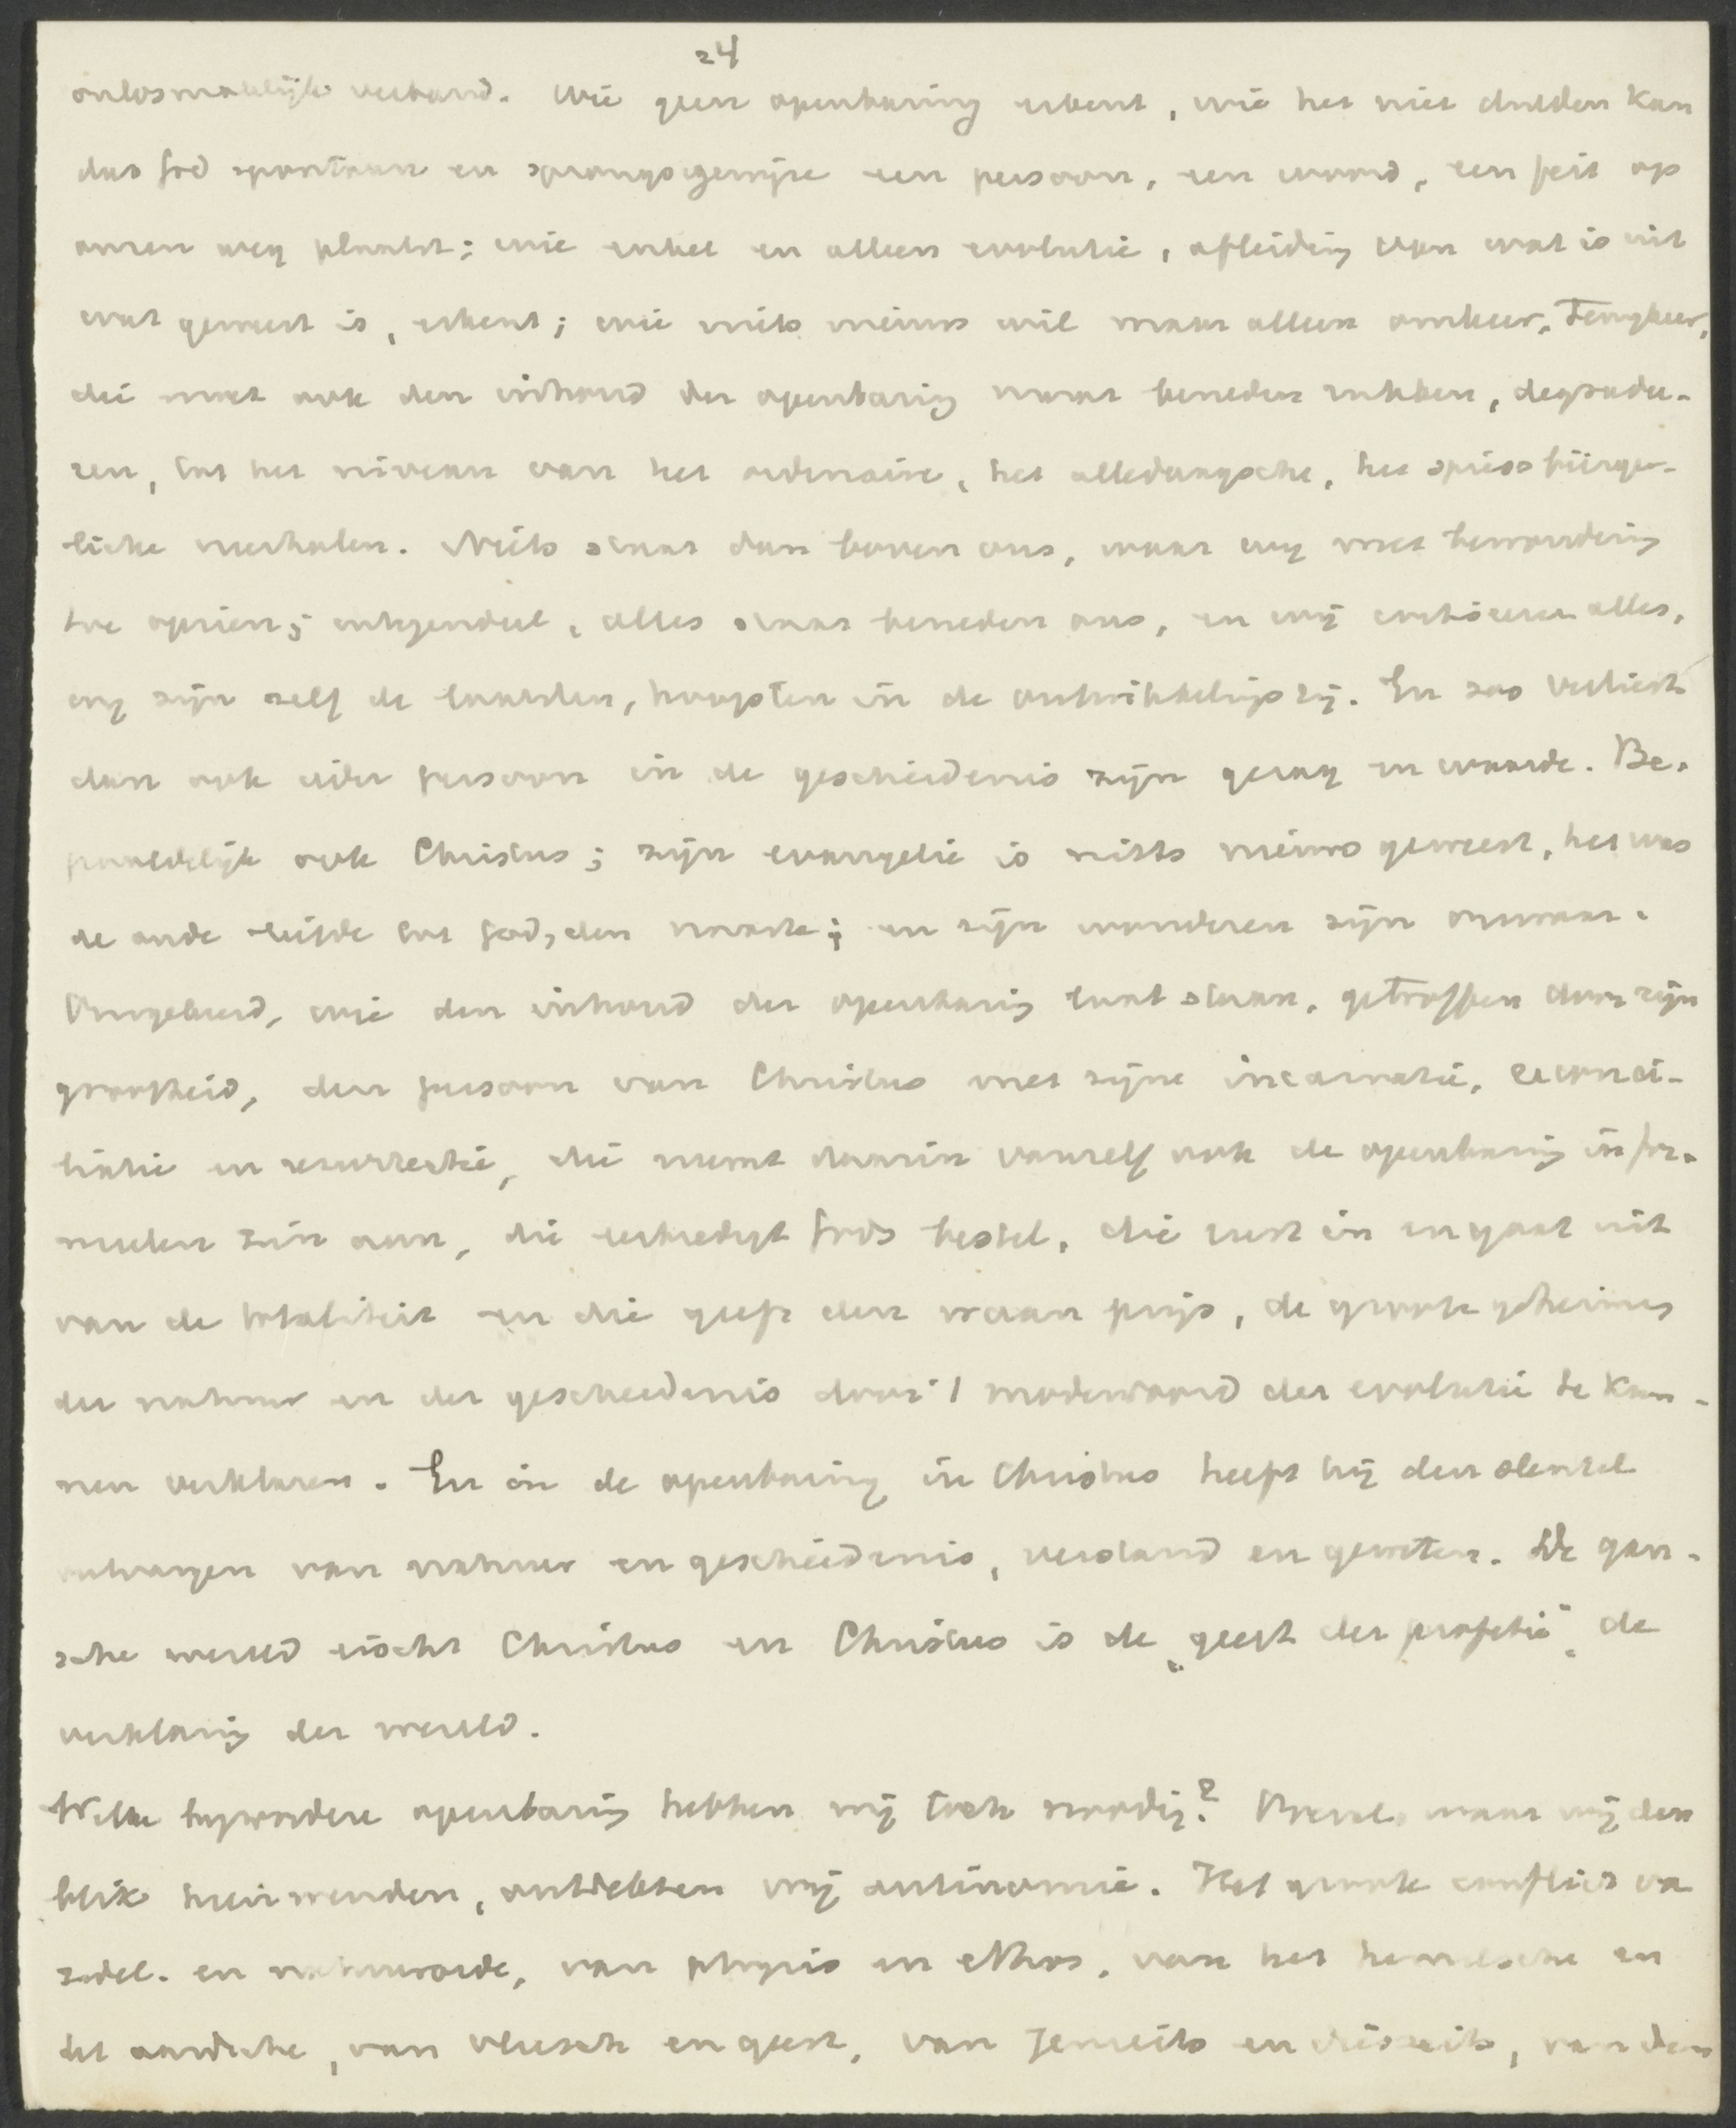 24
onlosmakelijk verband. Wie geen openbaring erkent, wie het niet dulden kan
dat God spontaan en sprongsgewijze een persoon, een woord, een feit op
onzen weg plaatst; wie enkel en alleen evolutie, afleiding van wat is uit
wat geweest is, erkent; wie niets nieuws wil maar alleen omkeer, Terugkeer,
die moet ook den inhoud der openbaring naar beneden rukken, degradee-
ren, tot het niveau van het ordinaire, het alledaagsche, het spiessbürger-
liche verhalen. Niets staat dan boven ons, waar wij met bewondering
toe opzien; integendeel, alles staat beneden ons, en wij critiseeren alles,
wij zijn zelf de laatsten, hoogsten in de ontwikkelingsrij. En zoo verliest
dan ook ieder persoon in de geschiedenis zijn gezag en waarde. Be-
paaldelijk ook Christus; zijn evangelie is niets nieuws geweest, het was
de oude liefde tot God, den naaste; en zijn wonderen zijn onwaar.
Omgekeerd, wie den inhoud der openbaring laat staan, getroffen door zijn
grootheid, den persoon van Christus met zijne incarnatie, reconci-
liatie en resurrectie, die neemt daarin vanzelf ook de openbaring in for-
meelen zin aan, die eerbiedigt Gods bestel, die rust in en gaat uit
van de totaliteit en die geeft den waan prijs, de groote geheimen
der natuur en der geschiedenis door 't modewoord der evolutie te kun-
nen verklaren. En in de openbaring in Christus heeft hij den sleutel
ontvangen van natuur en geschiedenis, verstand en geweten. De gan-
sche wereld zoekt Christus en Christus is de „geest der profetie“ de
verklaring der wereld.
Welke bijzondere openbaring hebben wij toch noodig? Overal, waar wij den
blik heen wenden, ontdekken wij antinomie. Het groote conflict van
zedel. en natuurorde, van physis en ethos, van het hemelsche en
het aardsche, van vleesch en geest, van Jenseits en diesseits, van den